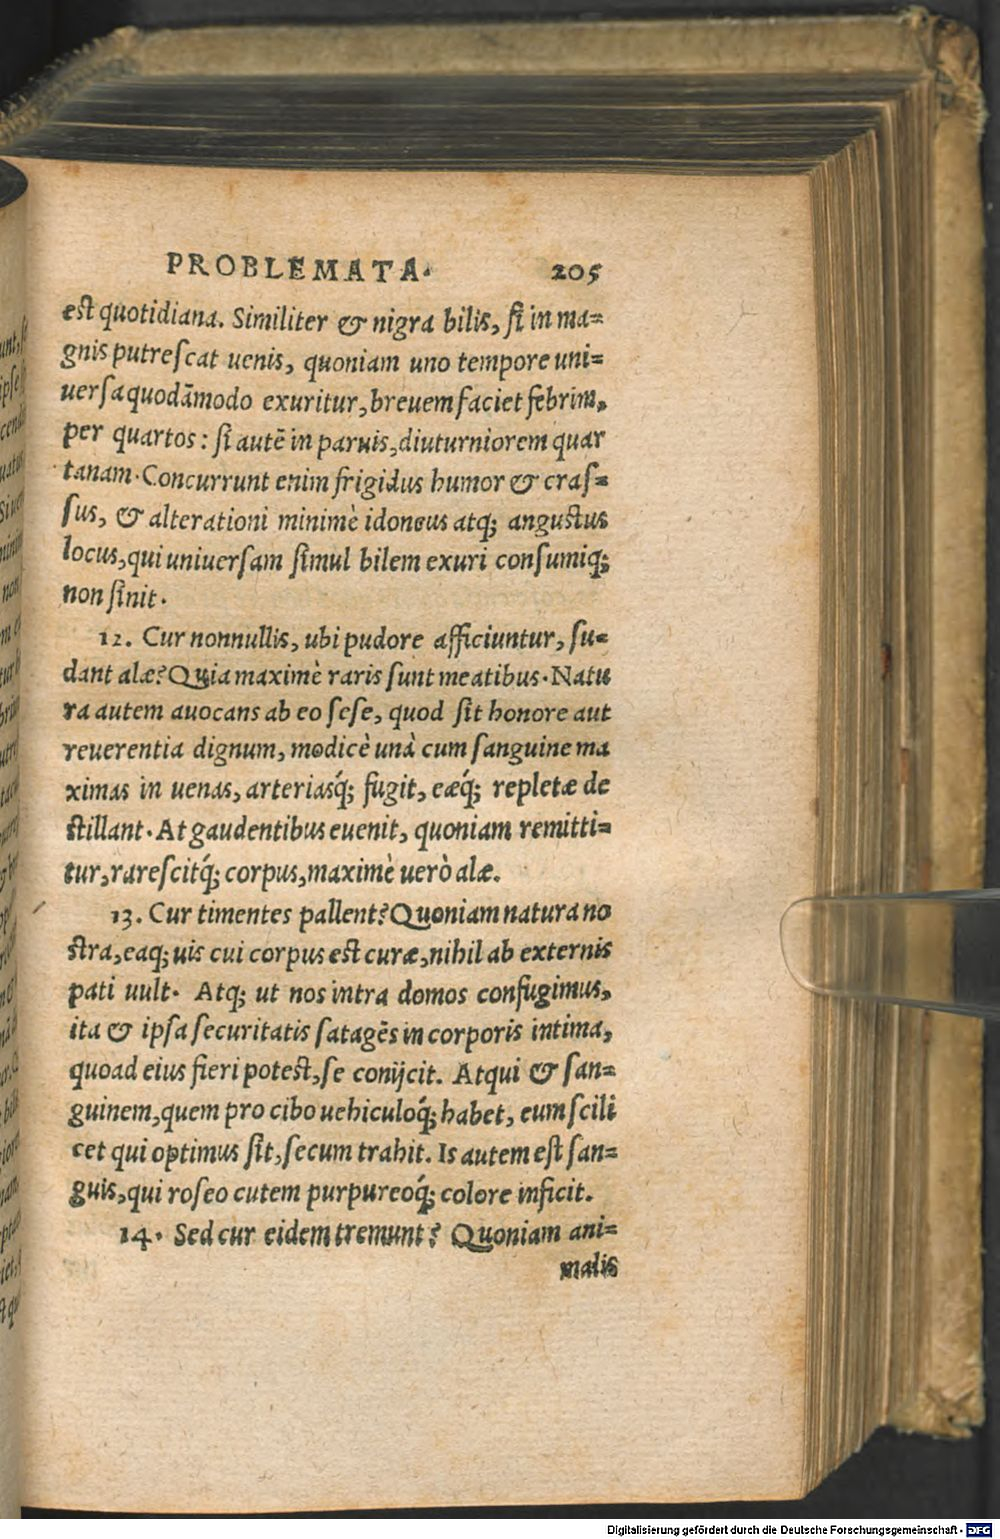 PROBLEMATA. 205
est quotidiana. Similiter & nigra bilis, ſi in ma=
gnis putreſcat uenis, quoniam uno tempore uni=
uerſa quodāmodo exuritur, breuem faciet febrim,
per quartos: ſi autē in paruis, diuturniorem quar
tanam. Concurrunt enim frigidus humor & craſ=
ſus, & alterationi minimè idoneus atq; anguſtus
locus, qui uniuerſam ſimul bilem exuri conſumiq;
non ſinit.
12. Cur nonnullis, ubi pudore afficiuntur, ſu=
dant alæ? Quia maximè raris ſunt meatibus. Natu
ra autem auocans ab eo ſeſe, quod ſit honore aut
reuerentia dignum, modicè unà cum ſanguine ma
ximas in uenas, arteriasq́; fugit, eæq́; repletæ de
ſtillant. At gaudentibus euenit, quoniam remitti=
tur, rareſcitq́; corpus, maximè uerò alæ.
13. Cur timentes pallent? Quoniam natura no
ſtra, eaq; uis cui corpus eſt curæ, nihil ab externis
pati uult. Atq; ut nos intra domos confugimus,
ita & ipſa ſecuritatis ſatagēs in corporis intima,
quoad eius fieri poteſt, ſe conijcit. Atqui & ſan=
guinem, quem pro cibo uehiculoq́; habet, eum ſcili
cet qui optimus ſit, ſecum trahit. Is autem eſt ſan=
guis, qui roſeo cutem purpureoq́; colore inficit.
14. Sed cur eidem tremunt? Quoniam ani=
malis
Digitalisierung gefördert durch die Deutsche Forschungsgemeinschaft - DFG